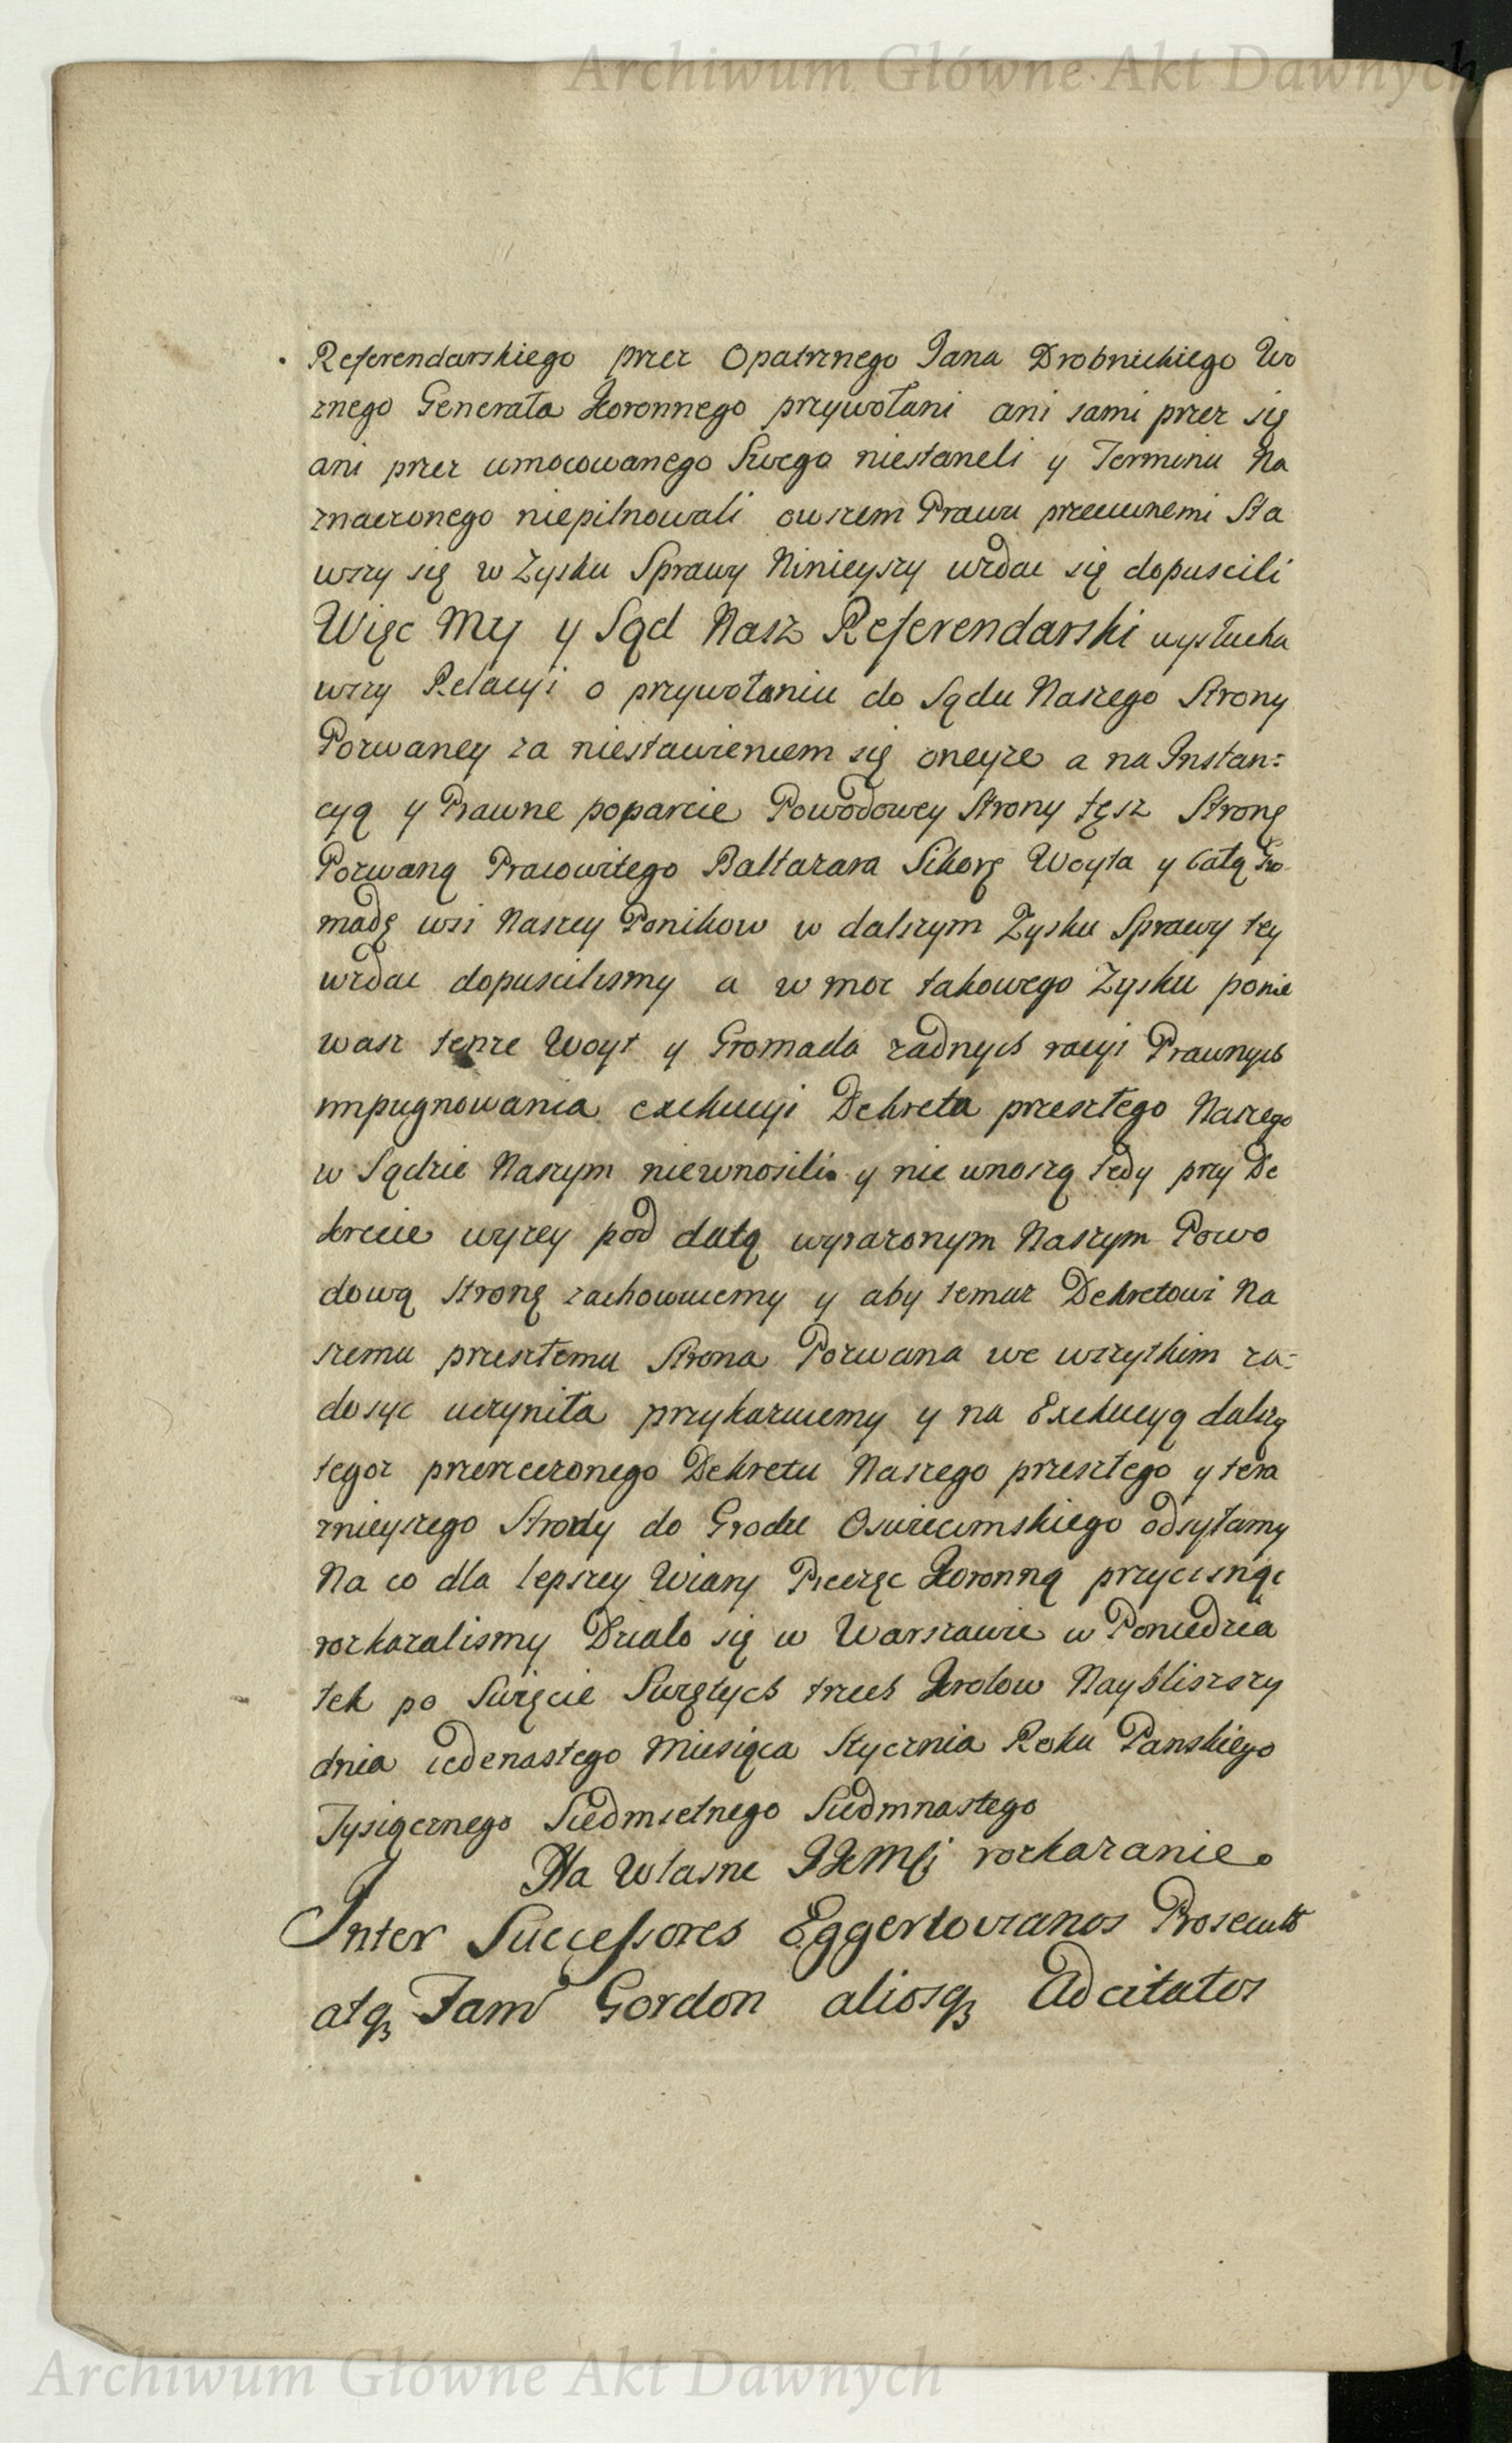 Archiwum Główne Akt Dawnych
Referendarskiego przez Opatrznego Jana Drobnickiego Wo
znego Generała Koronnego przywołani ani sami przez się
ani przez umocowanego Swego niestaneli y Terminu Na
znaczonego niepilnowali owszem Prawu przeciwnemi Sta
wszy się w Zysku Sprawy Ninieyszy wzdać się dopuscili
Więc My y Sąd Nasz Referendarski wysłucha
wszy Relacyi o przywołaniu do Sądu Naszego Strony
Pozwaney za niestawieniem się oneyze a na Instan=
cyą y Prawne poparcie Powodowey Strony tęsz Stronę
Pozwaną Pracowitego Baltazara Sikorę Woyta y Całą Gro
madę wsi Naszey Ponikow w dalszym Zysku Sprawy tey
wzdac dopuscilismy a w moc takowego Zysku ponie
wasz tenze Woyt y Gromada zadnych racyi Prawnych
impugnowania exekucyi Dekreta przeszłego Naszego
w Sądzie Naszym niewnosili y nie wnoszą tedy przy De
krecie wyzey pod datą wyrazonym Naszym Powo
dową stronę zachowuiemy y aby temuz Dekretowi Na
szemu przeszłemu Strona Pozwana we wszytkim za=
dosyc uczyniła przykazuiemy y na Exekucyą dalszą
tegoz przerzeczonego Dekretu Naszego przeszłego y tera
znieyszego Strony do Grodu Oswiecimskiego odsyłamy
Na co dla lepszey Wiary Pieczęc Koronną przycisnąc
rozkazalismy Działo się w Warszawie w Poniedzia
łek po Swięcie Swiętych trzech Krolow Naybliszszy
dnia iedenastego Miesiąca Stycznia Roku Panskiego
Tysiącznego Siedmsetnego Siedmnastego
Na Własne JKMści rozkazanie
Inter Successores Eggertovianos Prosecutos
atq3 Fam Gordon aliosq3 Adcitatos
Archiwum Główne Akt Dawnych